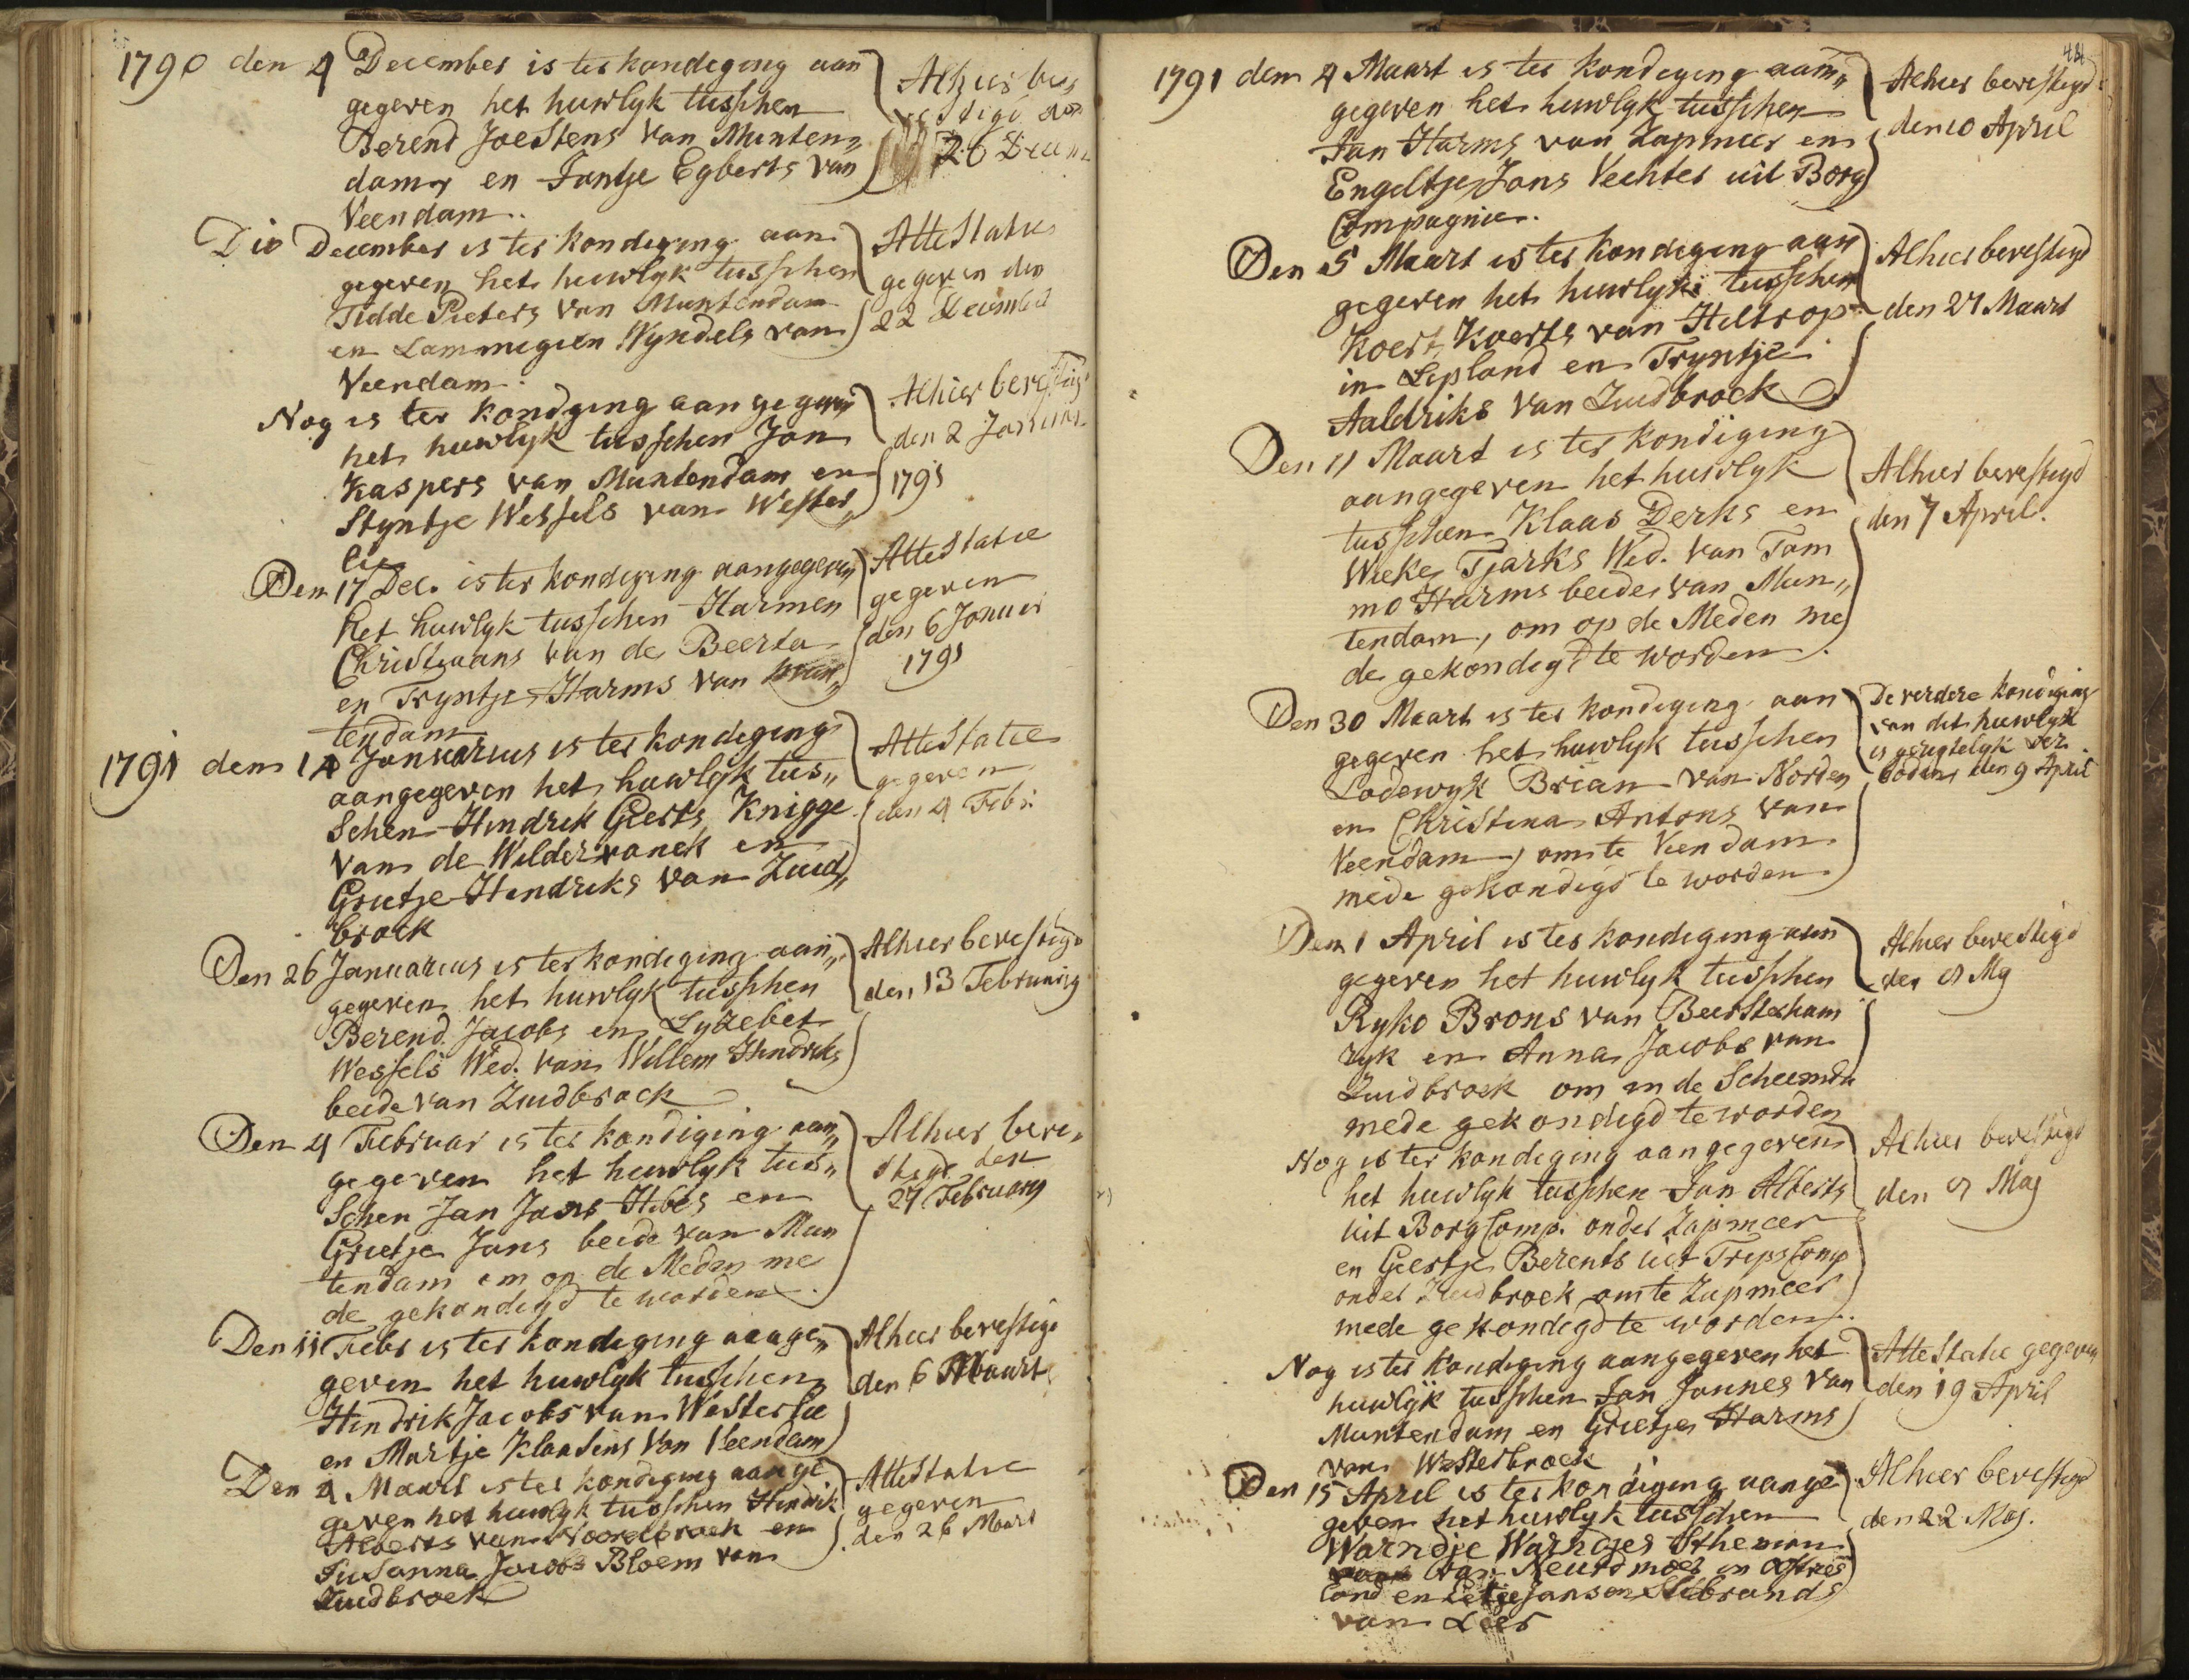 1790 den 4 December is ter kondeging aan
gegeven het huwlyk tusschen
Berend Joestens van Munten„
dam en Jantje Egberts van
Veendam..
Alhier be„
vestigd den
26 Decem
D 10 December is ter kondeging aan
gegeven het huwlyk tusschen
Tidde Pieters van Muntendam
en Lammegien Wyndels van
Veendam.
Attestatie
gegeven den
22 December
Nog is ter kondging aangegeven
het huwlyk tusschen Jan
Kaspers van Muntendam en
Styntje Wessels van Wester„
lee
Alhier bevestig
den 2 Januar
1791
Den 17 Dec. is ter kondeging aangegeven
het huwlyk tusschen Harmen
Christiaans van de Beerta
en Tryntje Harms van Mun„
tendam
Attestatie
gegeven
den 6 Januar
1791
1791 den 14 Januarius is ter kondeging
aangegeven het huwlyk tus„
schen Hindrik Geerts Knigge
van de Wildervanck en
Grietje Hendriks van Zuid„
broek
Attestatie
gegeven
den 4 Febr.
Den 26 Januarius is ter kondiging aan„
gegeven het huwlyk tusschen
Berend Jacobs en Lyzebet
Wessels Wed. van Willem Hendriks
beide van Zuidbroek
Alhier bevestigd
den 13 February
Den 4 Februar is ter kondiging aan„
gegeven het huwlyk tus„
schen Jan Jans Hibes en
Grietje Jans beide van Mun
tendam om op de Meden me
de gekondigd te worden.
Alhier beve„
stigd den
27 February
Den 11 Febr is ter kondeging aange„
geven het huwlyk tusschen
Hindrik Jacobs van Westerlee
en Martje Klaasens van Veendam
Alhier bevestigd
den 6 Maart
Den 4 Maart is ter kondeging aange
geven het huwlyk tusschen Hindrik
Alberts van Noordbroek en
Susanna Jacobs Bloem van
Zuidbroek
Attestatie
gegeven
den 26 Maart
48
1791 den 4 Maart is ter kondeging aan„
gegeven het huwlyk tusschen
Jan Harms van Zapmeer en
Engeltje Jans Vechter uit Borg
Compagnie.
Alhier bevestigd
den 10 April
Den 5 Maart is ter kondeging aan
gegeven het huwlyk tusschen
Koert Koerts van Heltrop
in Lipland en Tryntje
Aaldriks van Zuidbroek
Alhier bevestigd
den 27 Maart
Den 11 Maart is ter kondiging
aangegeven het huwlyk
tusschen Klaas Derks en
Wieke Tjarks Wed. van Tam
mo Harms beide van Mun„
tendam, om op de Meden me
de gekondigd te worden.
Alhier bevestigd
den 7 April.
Den 30 Maart is ter kondiging aan
gegeven het huwlyk tusschen
Lodewyk Brian van Norden
en Christina Antons van
Veendam, om te Veendam
mede gekondigd te worden
De verdere kondiging
van dit huwlyk
is geregtelyk ver
boden den 9 April
Den 1 April is ter kondiging aan
gegeven het huwlyk tusschen
Ryko Brons van Beersterham
ryk en Anna Jacobs van
Zuidbroek om in de Scheemda
mede gekondigd te worden
Alhier bevestigd
den My
Nog is ter kondiging aangegeven
het huwlyk tusschen Jan Alberts
uit Borg Comp. onder Zapmeer
en Geertje Berents uit Trips Comp
onder Zuidbroek om te Zapmeer
mede gekondigd te worden.
Alhier bevestigd
den Maj
Nog is ter kondiging aangegeven het
huwlijk tusschen Jan Jannes van
Muntendam en Grietje Harms
van Westerbroek
Attestatie gegeven
den 19 April
Den 15 April is ter kondiging aange
geven het huwlyk tusschen
Warndje Warndjes
van in Oostvries
land en Jansen Siebrands
van Leer
Alhier bevestigd
den 22 Maj.